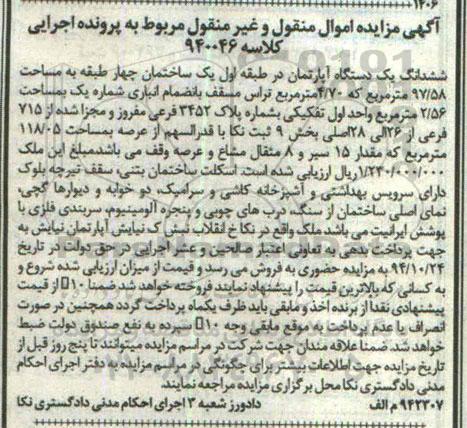 ۱۴۰۶
آگهی مزایده اموال منقول و غیر منقول مربوط به پرونده اجرایی
کلاسه ۹۴۰۰۴۶
ششدانگ یک دستگاه آپارتمان در طبقه اول یک ساختمان چهار طبقه به مساحت
۹۷/۵۸ مترمربع که ۴/۷۰مترمربع تراس مسقف بانضمام انباری شماره یک بمساحت
۲/۵۶ مترمربع واحد اول تفکیکی بشماره پلاک ۳۴۵۲ فرعی مفروز و مجزا شده از ۷۱۵
فرعی از ۲۶الی ۲۸اصلی بخش ۹ ثبت نکا با قدرالسهم از عرصه بمساحت ۱۱۸/۰۵
مترمربع که مقدار ۱۵ سیر و ۸ مثقال مشاع و عرصه وقف می باشدمبلغ این ملک
۱/۲۳۰/۰۰۰/۰۰۰ریال ارزیابی شده است. اسکلت ساختمان بتنی، سقف تیرچه بلوک
دارای سرویس بهداشتی و آشپزخانه کاشی و سرامیک، دو خوابه و دیوارها گچی،
نمای اصلی ساختمان از سنگ، درب های چوبی و پنجره آلومینیوم، سربندی فلزی با
پوشش ایرانیت می باشد ملک واقع در نکا خ انقلاب نبش ک نیایش آپارتمان نیایش به
جهت پرداخت بدهی به تعاونی اعتبار صالحین و عشر اجرایی در حق دولت در تاریخ
۹۴/۱۰/۲۴ به مزایده حضوری به فروش می رسد و قیمت از میزان ارزیابی شده شروع و
به کسانی که بالاترین قیمت را پیشنهاد نمایند فروخته خواهد شد ضمنا ۱۰٪ از قیمت
پیشنهادی نقدا از برنده اخذ و مابقی باید ظرف یکماه پرداخت گردد همچنین در صورت
انصراف یا عدم پرداخت به موقع مابقی وجه ۱۰٪ سپرده به نفع صندوق دولت ضبط
خواهد شد. ضمنا علاقه مندان جهت شرکت در مراسم مزایده میتوانند تا پنج روز قبل از
تاریخ مزایده جهت اطلاعات بیشتر برای چگونگی در مراسم مزایده به دفتر اجرای احکام
مدنی دادگستری نکا محل برگزاری مزایده مراجعه نمایند.
۹۴۲۳۰۷ م الف دادورز شعبه ۳ اجرای احکام مدنی دادگستری نکا